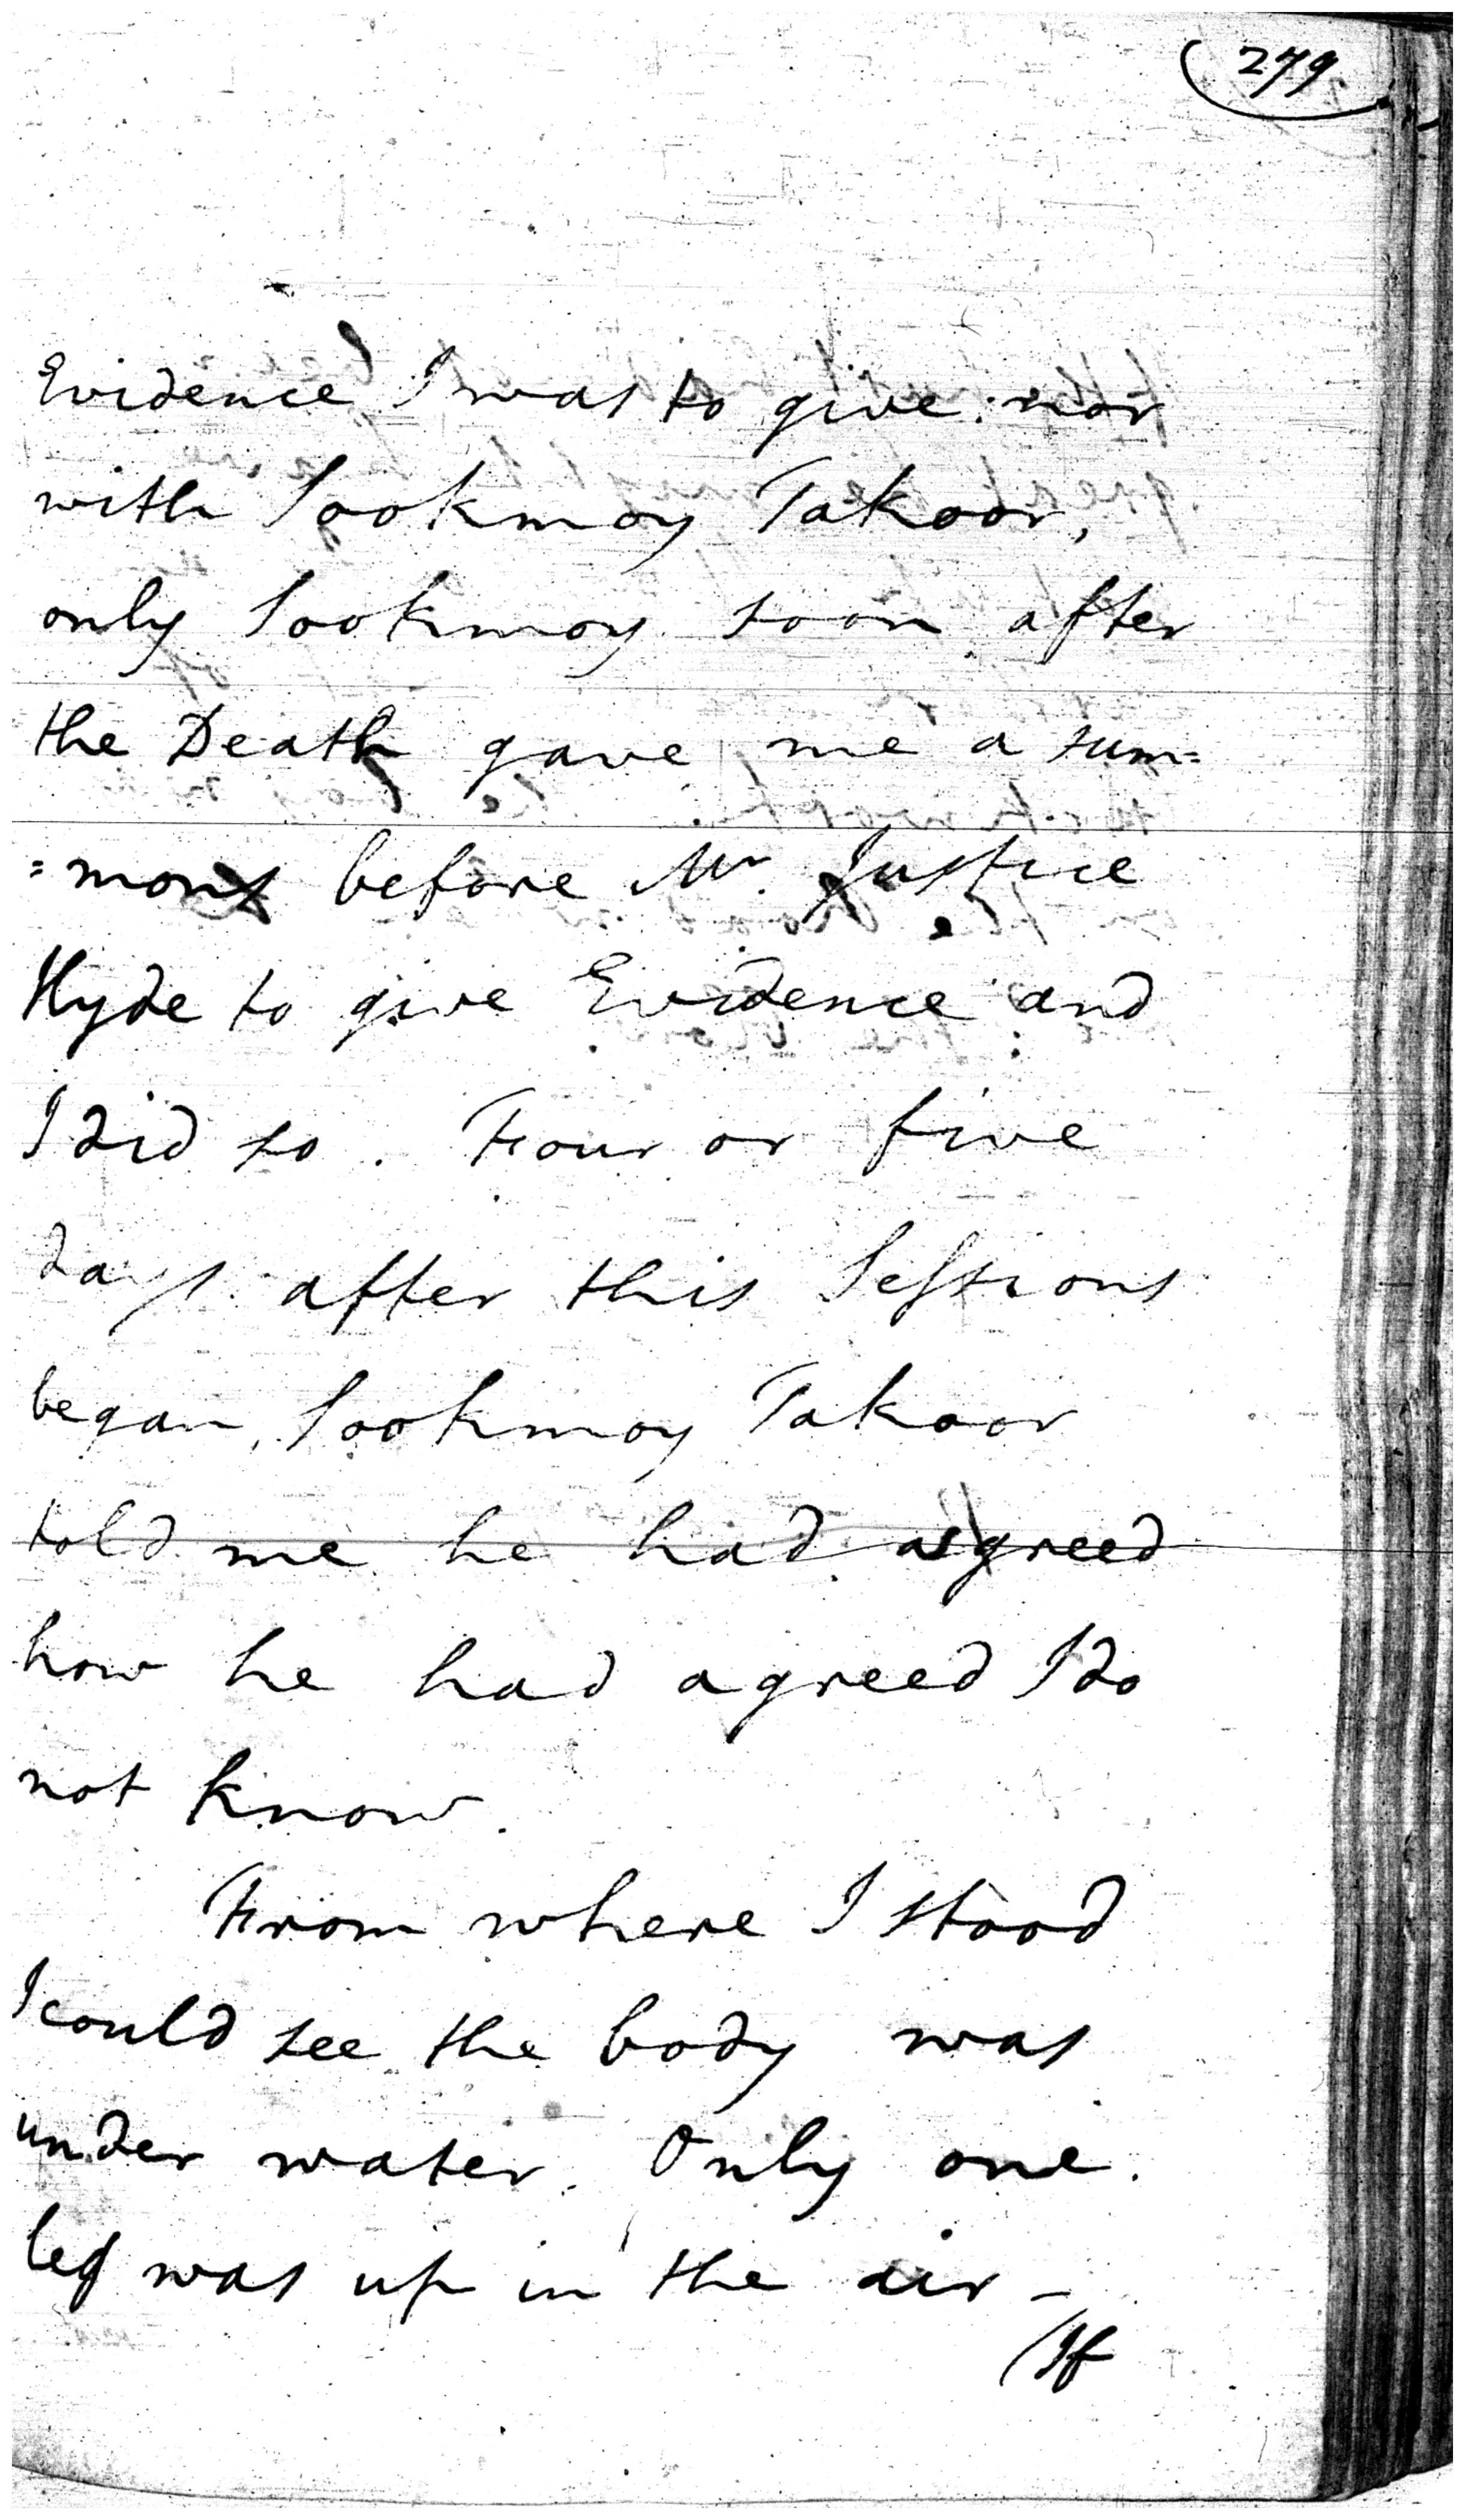 279
Evidence I was to give: nor
with Sookmoy Takoor,
only Sookmoy soon after
the Death gave me a sum=
=mons before Mr. Justice
Hyde to give Evidence and
I did so. Four or five
days after this Sessions
began, Sookmoy Takoor
told me he had agreed
how he had agreed I do
not know.
From where I stood
I could see the body was
under water. Only one
leg was up in the air -
(If